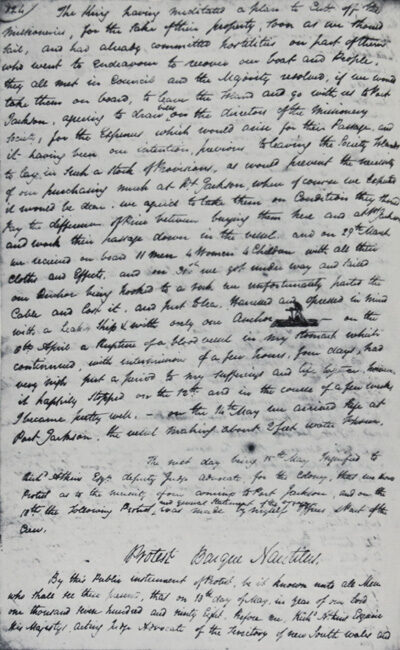 324
The King having meditated a plan to Cut off the
Missionaries, for the Sake of their property, soon as we should
sail, and had already committed hostilities on part of them
who went to Endeavour to recover our boat and People,
they all met in Council and the Majority resolved, if we would
take them on board, to leave the Island and go with us to Port
Jackson, agreeing to draw on the directors of the Missionary
Society, for the Expense which would arise for their Passage, and
it having been our intention, previous to leaving the Society Islands
to lay in Such a Stock of Provisions, as would prevent the necessity
of our purchasing much at Pt. Jackson, where of course we Expected
it would be dear. we agreed to take them on Condition they should
Pay the difference of Price between buying them here and at Pt. Jackson
and work their passage down in the vessel. and on 29th March
we received on board 11 men 4 Women & 4 Children with all their
Cloths and Effects. and on 30th we got under way and Said
our Anchor being hooked to a rock we unfortunately parted the
Cable and lost it. and put to Sea. Harrassed and opressed in mind
with a leaky Ship & with only one Anchor on the
9th April a Rupture of a blood vessel in my Stomach which
continued, with intermissions of a few hours, four days, had
very nigh put a period to my sufferings and life together, however
it happily Stopped on the 12th and in the course of a few weeks
I became pretty well. — on the 14th May we arrived Safe at
Port Jackson. the vessel making about 2 feet water pr hour.
The next day being 15th May I applied to
Richd Atkins Esqr. deputy Judge Advocate for the Colony, that we
Protest as to the necessity of our coming to Port Jackson, and on the
18th the following Protest, and General Statement was made by myself Officers & Part of the
Crew.
Protest Barque Nautilus.
By this Public instrument of Protest, be it known unto all Men
who shall see these present, that on 18th day of May, in year of our Lord
one thousand seven hundred and ninty Eight, Before me, Richd Atkins Esquire
His Majestys acting Judge Advocate of the Territory of new South Wales and